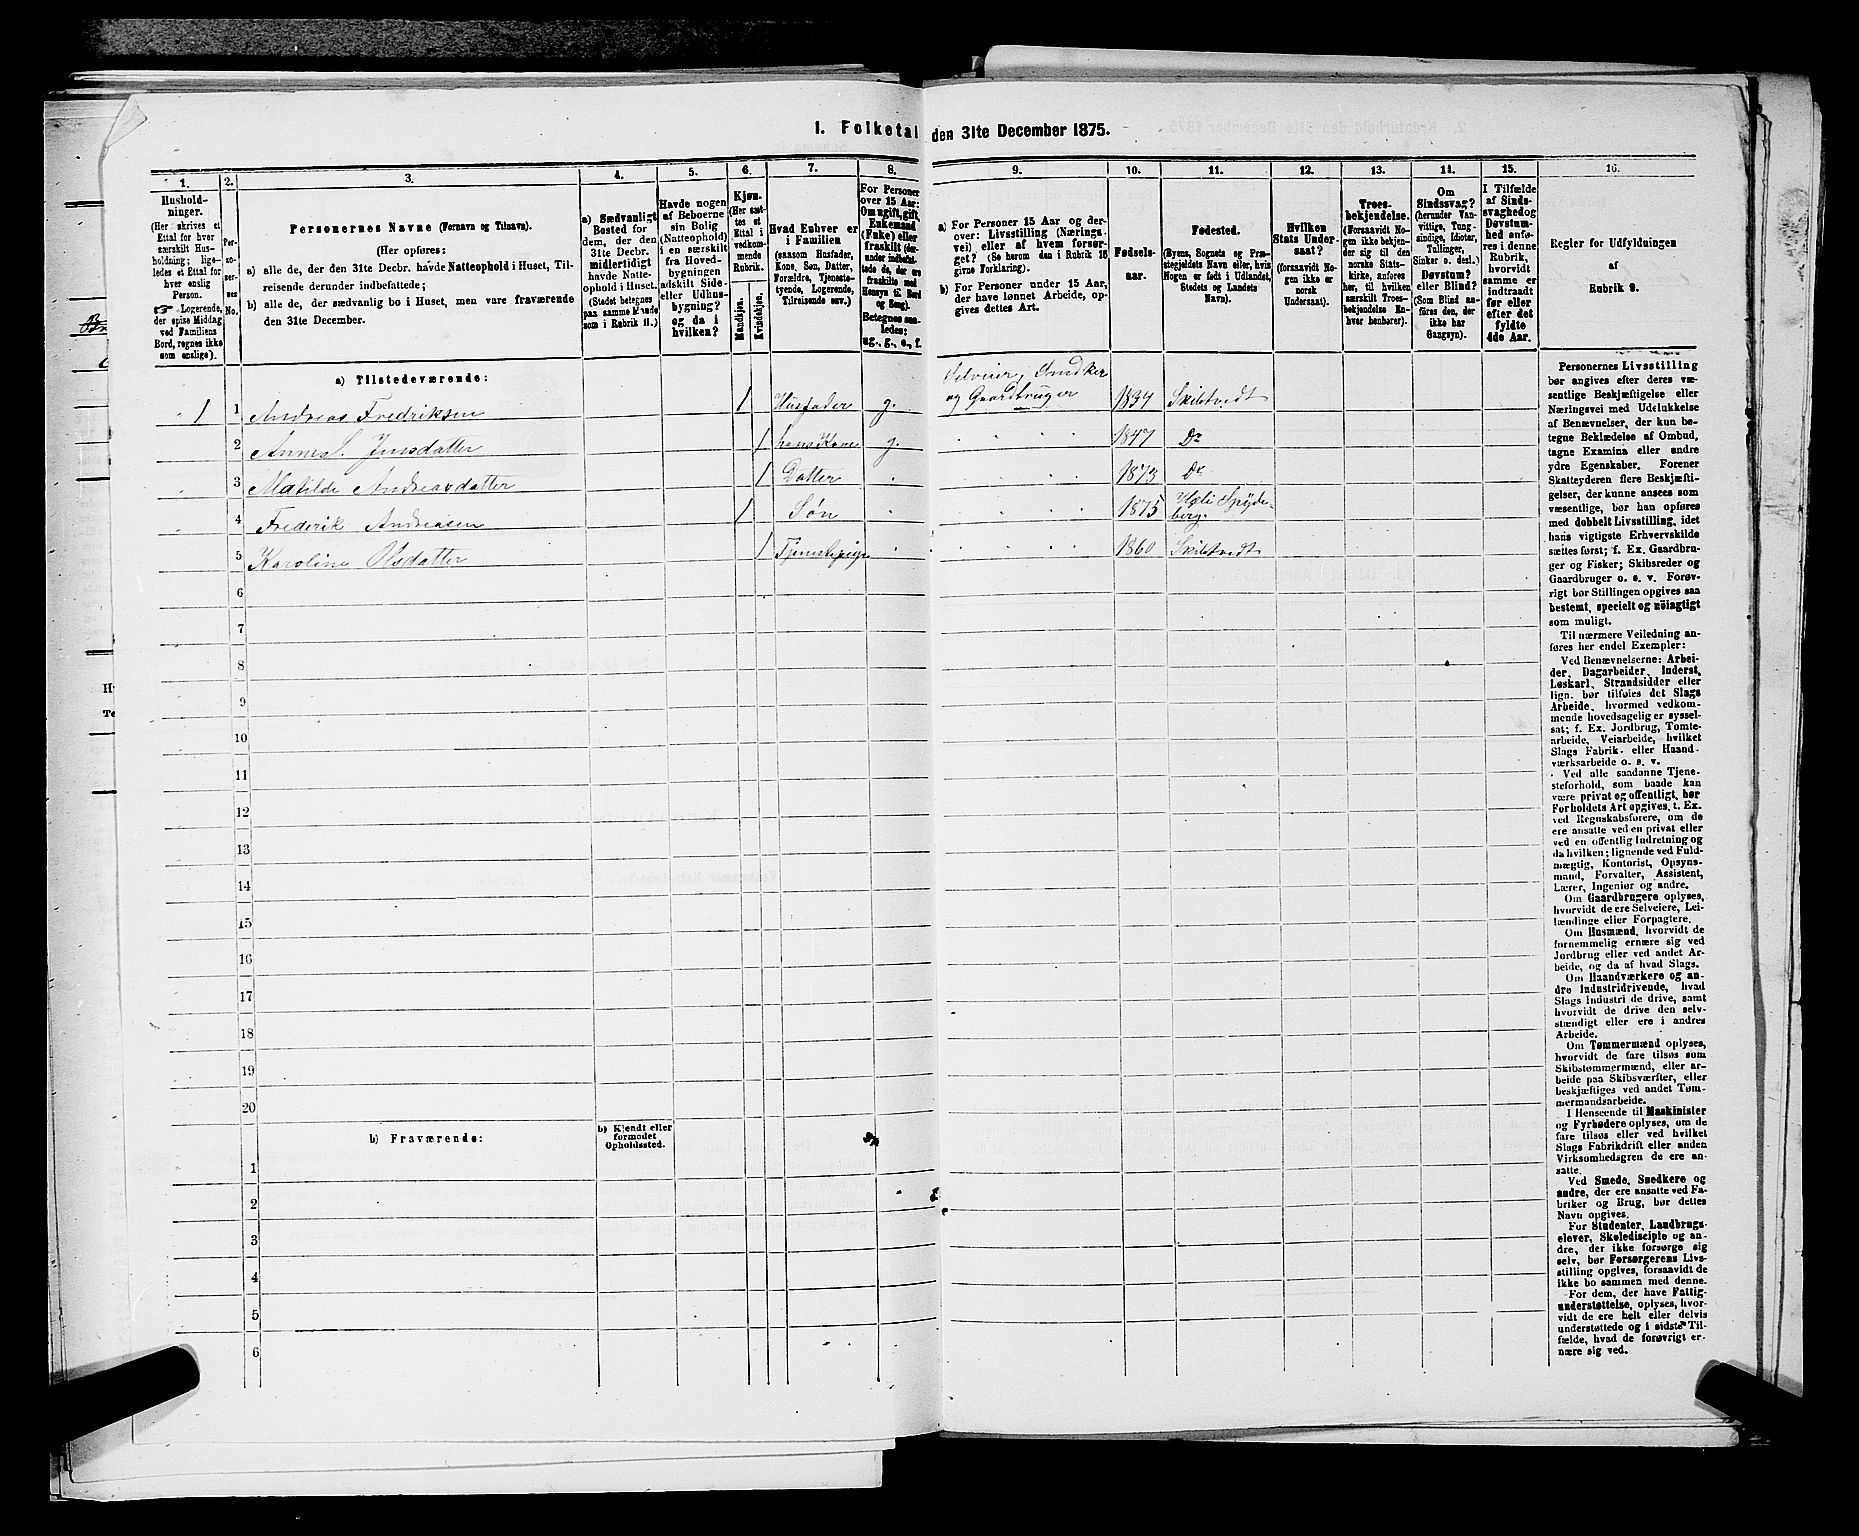 I. Folketal den 31te December 1875.
1.
2.
3.
4.
5.
6.
7.
8.
9.
10.
11.
12.
13.
14.
15.
16.
Hushold-
ninger.
(Her skrives et
Ettal for hver
særskilt Hus-
holdning; lige-
ledes et Ettal for
hver enslig
Person.
Logerende,
der spise Middag
ved Familiens
Bord, regnes ikke
som enslige).
Per-
so-
ner-
nes
No.
Personernes Navne (Fornavn og Tilnavn).
(Her opføres:
a) alle de, der den 31te Decbr. havde Natteophold i Huset, Til-
reisende derunder indbefattede;
b) alle de, der sædvanlig bo i Huset, men vare fraværende
den 31te December.
a) Sædvanligt
Bosted for
dem, der den
31te Decbr.
midlertidigt
havde Natte-
ophold i Huset.
(Stedet betegnes
paa samme Maade
som i Rubrik 11.)
Havde nogen
af Beboerne
sin Bolig
(Natteophold)
i en særskilt
fra Hoved-
bygningen
adskilt Side-
eller Udhus-
bygning?
og da i
hvilken?
Kjøn.
(Her sæt-
tes et
Ettal i
vedkom-
mende
Rubrik.
Mandkjøn.
Kvindekjøn.
Hvad Enhver er
i Familien
(saasom Husfader,
Kone, Søn, Datter,
Forældre, Tjeneste-
tyende, Logerende,
Tilreisende osv.)
For Personer
over 15 Aar:
Om ugift, gift,
Enkemand
(Enke) eller
fraskilt (der-
under indbefat-
tede de, der ere
fraskilte med
Hensyn til Bord
og Seng).
Betegnes saa-
ledes:
ug., g., e., f.
a) For Personer 15 Aar og der-
over: Livsstilling (Nærings-
vei) eller af hvem forsør-
get? (Se herom den i Rubrik 16
givne Forklaring).
b) For Personer under 15 Aar,
der have lønnet Arbeide, op-
gives dettes Art.
Fødsels-
aar.
Fødested.
(Byens, Sognets og Præ-
stegjeldets Navn eller, hvis
Nogen er født i Udlandet,
Stedets og Landets
Navn).
Hvilken
Stats Under-
saat?
(forsaavidt No-
gen ikke er
norsk
Undersaat).
Troes-
bekjendelse.
(Forsaavidt No-
gen ikke bekjen-
der sig til den
norske Stats-
kirke, anføres
her, til hvilken
særskilt Troes-
bekjendelse En-
hver henhører).
Om
Sindssvag?
(herunder Van-
vittige, Tung-
sindige, Idioter,
Tullinger,
Sinker o. desl.)
Døvstum?
eller Blind?
(Som Blind an-
føres den, der
ikke har
Gangsyn).
I Tilfælde
af Sinds-
svaghed og
Døvstum-
hed anfø-
res i denne
Rubrik,
hvorvidt
samme er
indtraadt
før eller
efter det
fyldte
4de Aar.
Regler for Udfyldningen
af
Rubrik 9.
a) Tilstedeværende:
1 1 Andreas Fredriksen 1 Husfader g. Selveier, Snedker
og Gaardbruger 1834 Skibtvedt
2 Anne S. Jensdatter 1 hans Kone g. 1847 Do
3 Matilde Andreasdatter 1 Datter 1873 Do
4 Frederik Andreasen 1 Søn 1875 Spyde-
berg
5 Karoline Olsdatter 1 Tjenestepige 1860 Skibtvedt
6
7
8
9
10
11
12
13
14
15
16
17
18
19
20
b) Fraværende:
b) Kjendt eller
formodet
Opholdssted.
1
2
3
4
5
6
Personernes Livsstilling
bør angives efter deres væ-
sentlige Beskjæftigelse eller
Næringsvei med Udelukkelse
af Benævnelser, der kun be-
tegne Beklædelse af Ombud,
tagne Examina eller andre
ydre Egenskaber. Forener
Skatteyderen flere Beskjæfti-
gelser, der kunne ansees som
væsentlige, bør han opføres
med dobbelt Livsstilling, idet
hans vigtigste Erhvervskilde
sættes først; f. Ex. Gaardbru-
ger og Fisker; Skibsreder og
Gaardbruger o. s. v. Forøv-
rigt bør Stillingen opgives saa
bestemt, specielt og nøiagtigt
som muligt.
Til nærmere Veiledning an-
føres her endel Exempler:
Ved Benævnelserne: Arbei-
der, Dagarbeider, Inderst,
Løskarl, Strandsidder eller
lign. bør tilføies det Slags
Arbeide, hvormed vedkom-
mende hovedsagelig er syssel-
sat; f. Ex. Jordbrug, Tomte-
arbeide, Veiarbeide, hvilket
Slags Fabrik- eller Haand-
værksarbeide o. s. v.
Ved alle saadanne Tjene-
steforhold, som baade kan
være privat og offentligt, bør
Forholdets Art opgives, t. Ex.
ved Regnskabsførere, om de
ere ansatte ved en privat eller
ved en offentlig Indretning og
da hvilken; lignende ved Fuld-
mægtig, Kontorist, Opsyns-
mand, Forvalter, Assistent,
Lærer, Ingeniør og andre.
Om Gaardbrugere oplyses,
hvorvidt de ere Selveiere, Lei-
lændinge eller Forpagtere.
Om Husmænd, hvorvidt de
fornemmelig ernære sig ved
Jordbrug eller ved andet Ar-
beide, og da af hvad Slags.
Om Haandværkere og an-
dre Industridrivende, hvad
Slags Industri de drive, samt
hvorvidt de drive den selv-
stændigt eller ere i andres
Arbeide.
Om Tømmermænd oplyses,
hvorvidt de fare tilsøs som
Skibstømmermænd, eller ar-
beide paa Skibsværfter, eller
beskjæftiges ved andet Tøm-
mermandsarbeide.
I Henseende til Maskinister
og Fyrbødere oplyses, om de
fare tilsøs eller ved hvilket
Slags Fabrikdrift eller anden
Virksomhedsgren de ere an-
satte.
Ved Smede, Snedkere og
andre, der ere ansatte ved Fa-
briker og Brug, bør dettes
Navn opgives.
For Studenter, Landbrugs-
elever, Skoledisciple og an-
dre, der ikke forsørge sig
selv, bør Forsørgerens Livs-
stilling opgives, forsaavidt de
ikke bo sammen med denne.
For dem, der have Fattig-
understøttelse, oplyses, hvor-
vidt de ere helt eller delvis
understøttede og i sidste Til-
fælde, hvad de forøvrigt er-
nære sig ved.